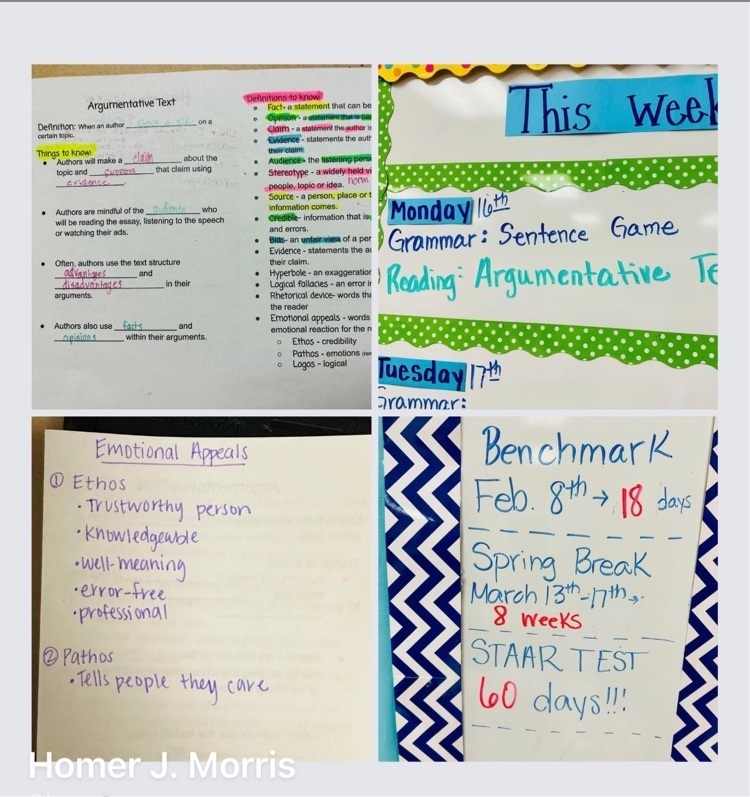 Argumentative Text
Definition: When an author on a
certain topic.
Things to know:
Authors will make a claim about the
topic and support that claim using
evidence.
Authors are mindful of the audience who
will be reading the essay, listening to the speech
or watching their ads.
Often, authors use the text structure
advantages and
disadvantages in their
arguments.
Authors also use facts and
opinions within their arguments.
Definitions to know:
Fact- a statement that can be
Opinion- a statement that is
Claim - a statement the author is
Evidence - statements the aut
their claim.
Audience- the listening pers
Stereotype - a widely held vi
people, topic or idea. norm
Source - a person, place or t
information comes.
Credible- information that is
and errors.
Bias- an unfair view of a per
Evidence - statements the a
their claim.
Hyperbole - an exaggeration
Logical fallacies - an error in
Rhetorical device- words tha
the reader
Emotional appeals - words
emotional reaction for the r
Ethos - credibility
Pathos - emotions
Logos - logical
This Week
Monday 16th
Grammar: Sentence Game
Reading: Argumentative Te
Tuesday 17th
Grammar:
Emotional Appeals
① Ethos
• Trustworthy person
• Knowledgeable
• well-meaning
• error-free
• professional
② Pathos
• Tells people they care
Benchmark
Feb. 8th → 18 days
Spring Break
March 13th-17th →
8 weeks
STAAR TEST
60 days!!!
Homer J. Morris